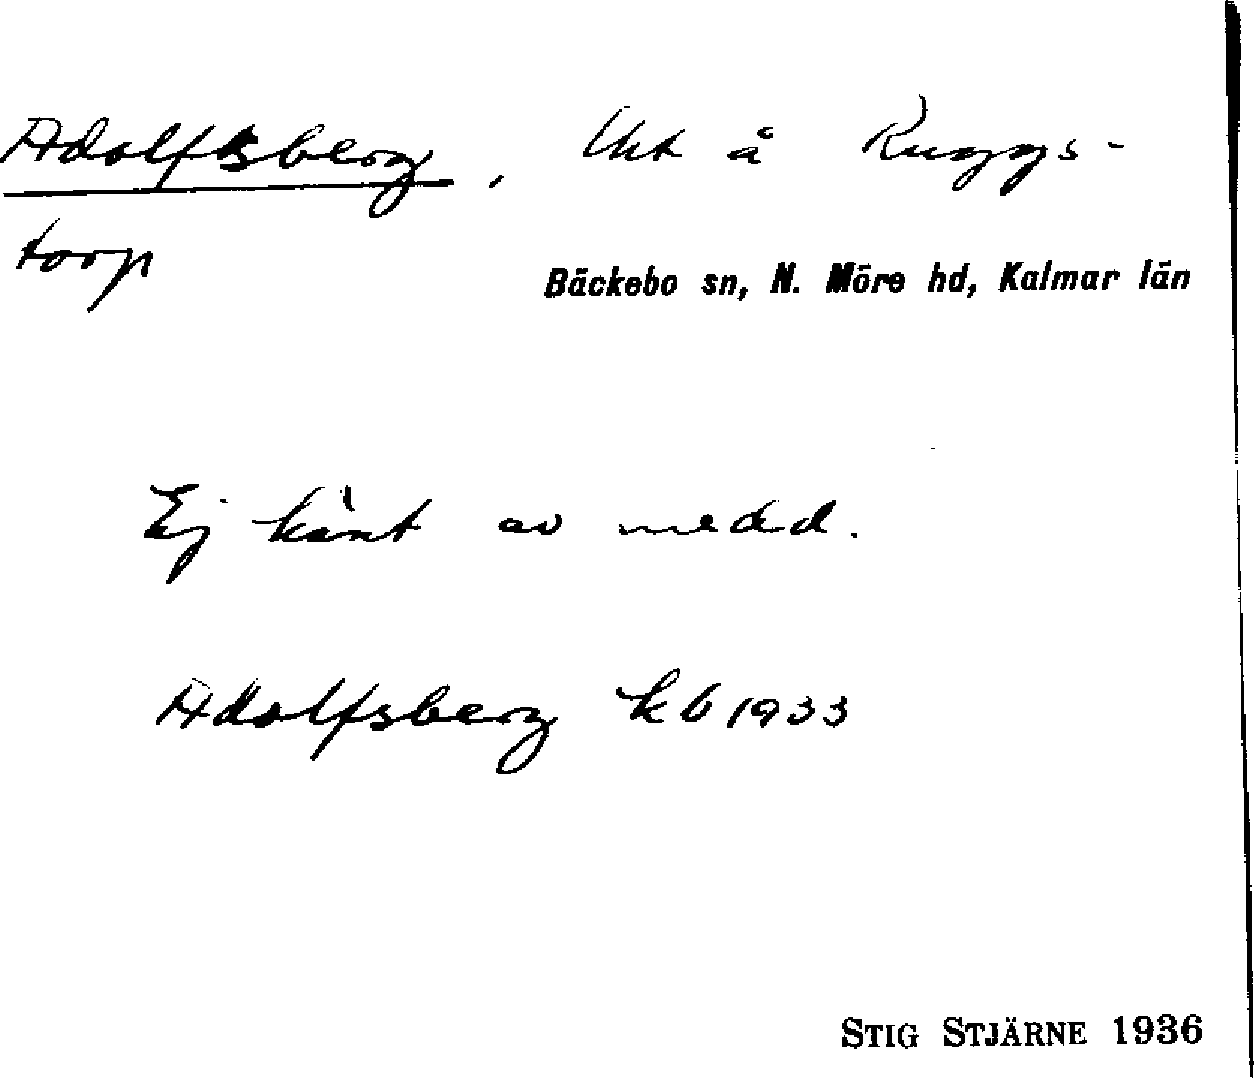 Adolfsberg, Ukt å Ruggs-
torp
Bäckebo sn, N. Möre hd, Kalmar län
Ej känt av medd.
Adolfsberg kb 1933
STIG STJÄRNE 1936